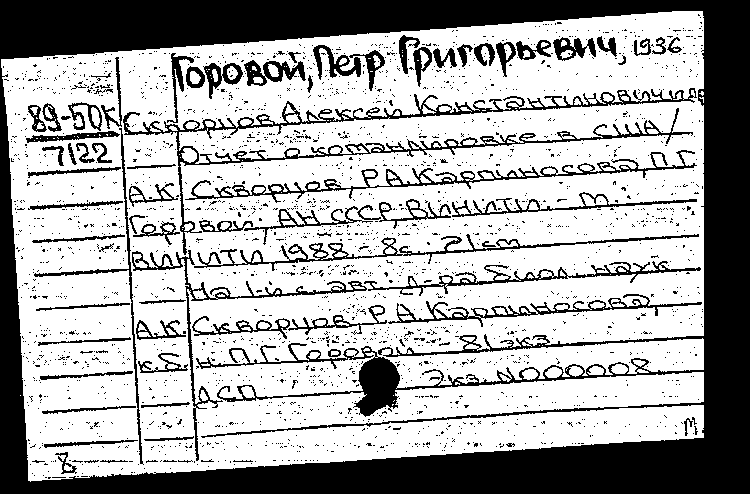 Горовой, Петр Григорьевич, 1936
89-50К Скворцов, Алексей Константинович и др
7122 Отчет о командировке в США /
А.К. Скворцов, Р.А. Карпиносова, П.Г.
Горовой; АН СССР, ВИНИТИ. - М.:
ВИНИТИ, 1988. - 8с.; 21см
На 1-й с. авт.: д-ра биол. наук
А.К. Скворцов, Р.А. Карпиносова,
к.б.н. П.Г. Горовой - 81 экз.
ДСП Экз. N000008.
М
8